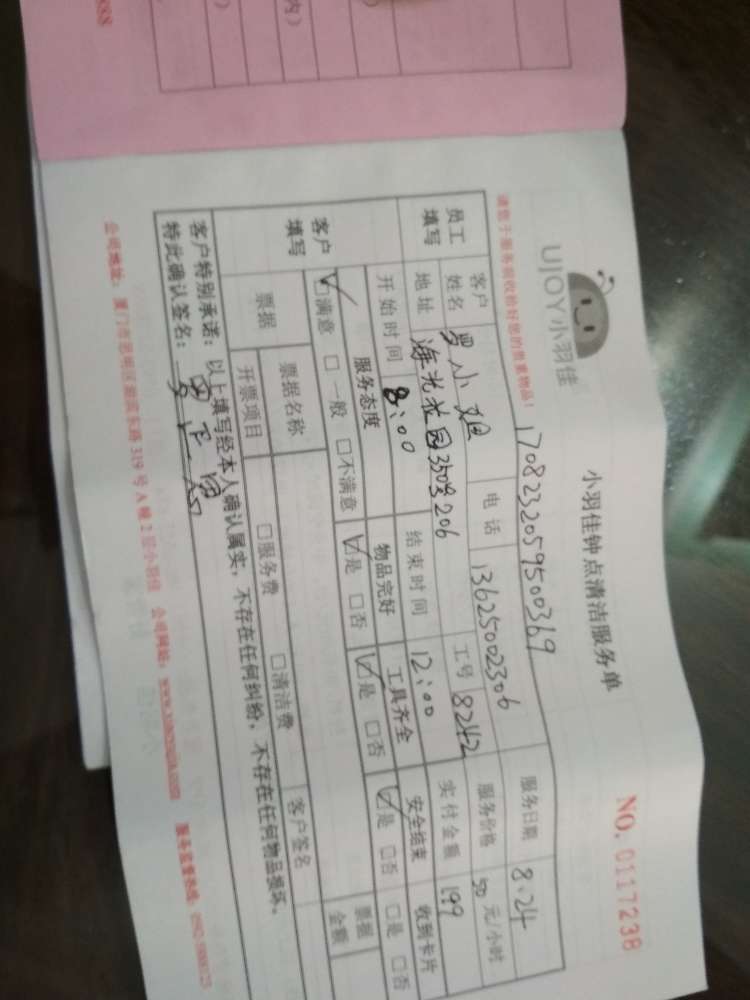 内）
UJOY小羽佳
小羽佳钟点清洁服务单
NO. 0117238
请您于服务前收拾好您的贵重物品！
1708232059500369
服务日期 8.24
员工填写
客户姓名 罗小姐 电话 13625002306 服务价格 50 元/小时
地址 海光花园350号206 工号 8242 实付金额 199
开始时间 8:00 结束时间 12:00
客户填写
服务态度 物品完好 工具齐全 安全结束 收到卡片
☑满意 □一般 □不满意 ☑是 □否 ☑是 □否 ☑是 □否 □是 □否
票据 票据名称 客户签名 票据金额
开票项目 □服务费 □清洁费
客户特别承诺：以上填写经本人确认属实，不存在任何纠纷，不存在任何物品损坏。
特此确认签名：
公司地址：厦门市思明区湖滨东路 319 号 A 幢 2 层小羽佳 公司网址： 服务监督热线：